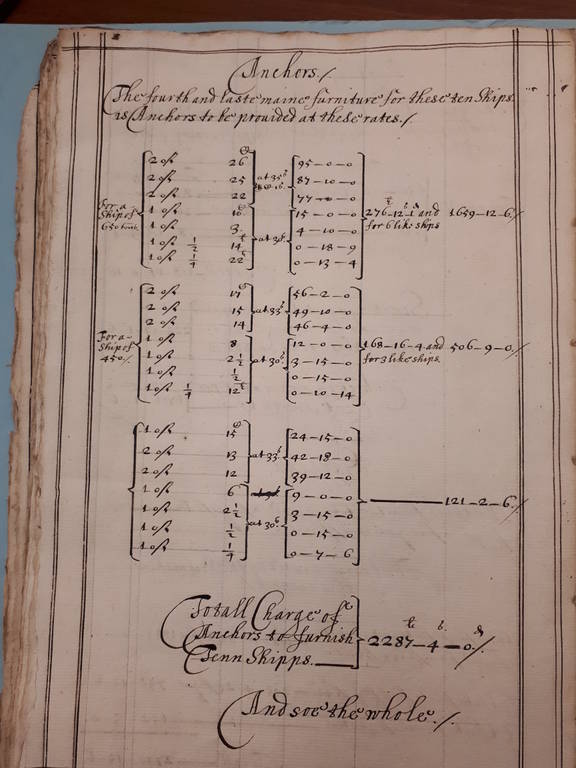 Anchors./
The fourth and laste maine furniture for these ten Ships
is Anchors to be provided at these rates./
2 of 26
2 of 25 at 35s
2 of 22
For a Ship of 650 tonn.
1 of 10
1 of 3
1 of ½ 14
1 of ¼ 22
at 30s.
95–0–0
87–10–0
77–0–0
15–0–0
4–10–0
0–18–9
0–13–4
276–12–1 and for 6 like ships
1659–12–6/
For a Ship of 450/.
2 of 17
2 of 15 at 33s
2 of 14
1 of 8
1 of 2½ at 30s.
1 of ½
1 of ¼ 12
56–2–0
49–10–0
46–4–0
12–0–0
3–15–0
0–15–0
0–10–14
168–16–4 and for 3 like ships
506–9–0/
1 of 15
2 of 13 at 33s
2 of 12
1 of 6
1 of 2½
1 of ½ at 30s
1 of ¼
24–15–0
42–18–0
39–12–0
9–0–0
3–15–0
0–15–0
0–7–6
121–2–6/
Totall Charge of
Anchors to furnish
Tenn Shipps.
2287–4–0./
And soe the whole./